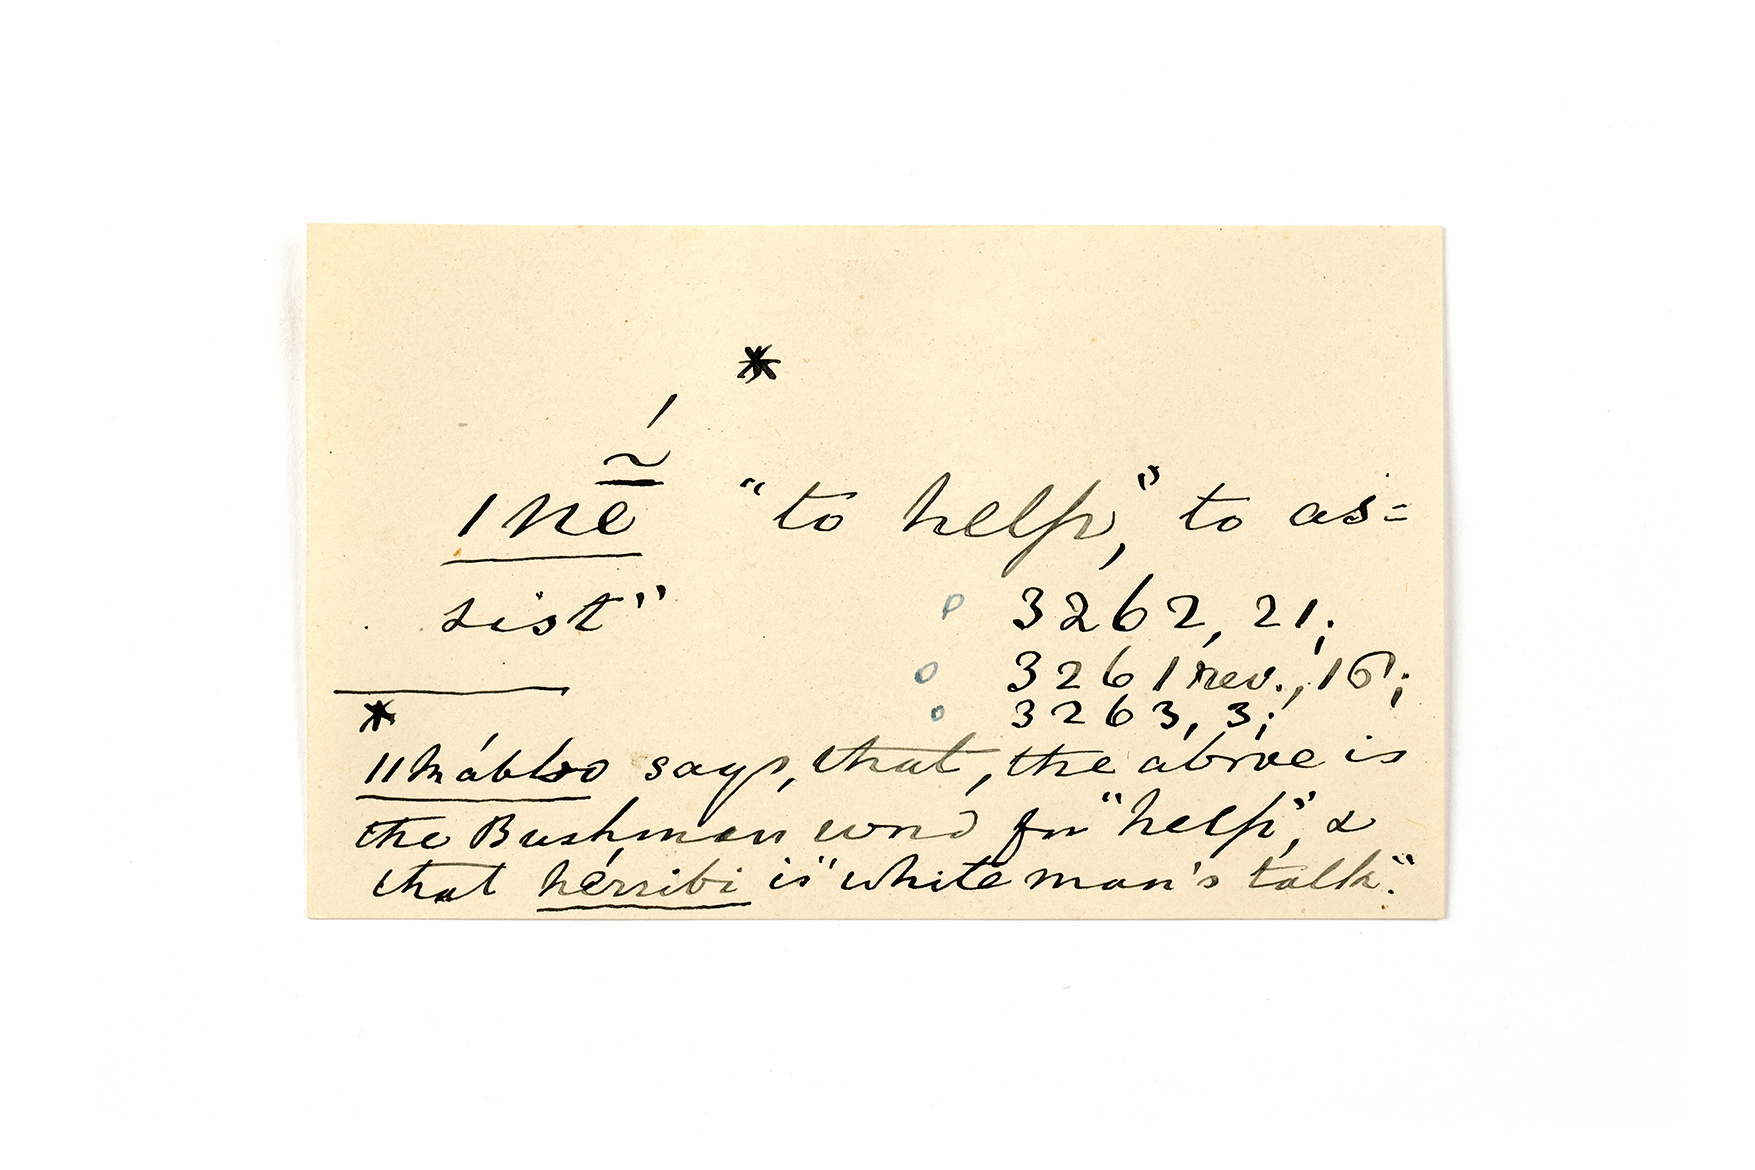 *
ǀnḗ̃ "to help," to as=
sist" 3262, 21;
3261 rev., 16;
3263, 3;
*
ǁhábbo says, that, the above is
the Bushman word for "help", &
that hérribi is "white man's talk."